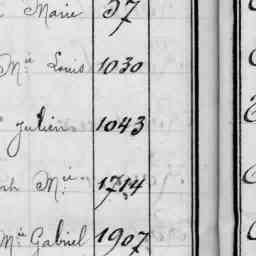 Marie 37
Mie Louis 1030
Julien 1043
ph Mie 1714
Mie Gabriel 1907